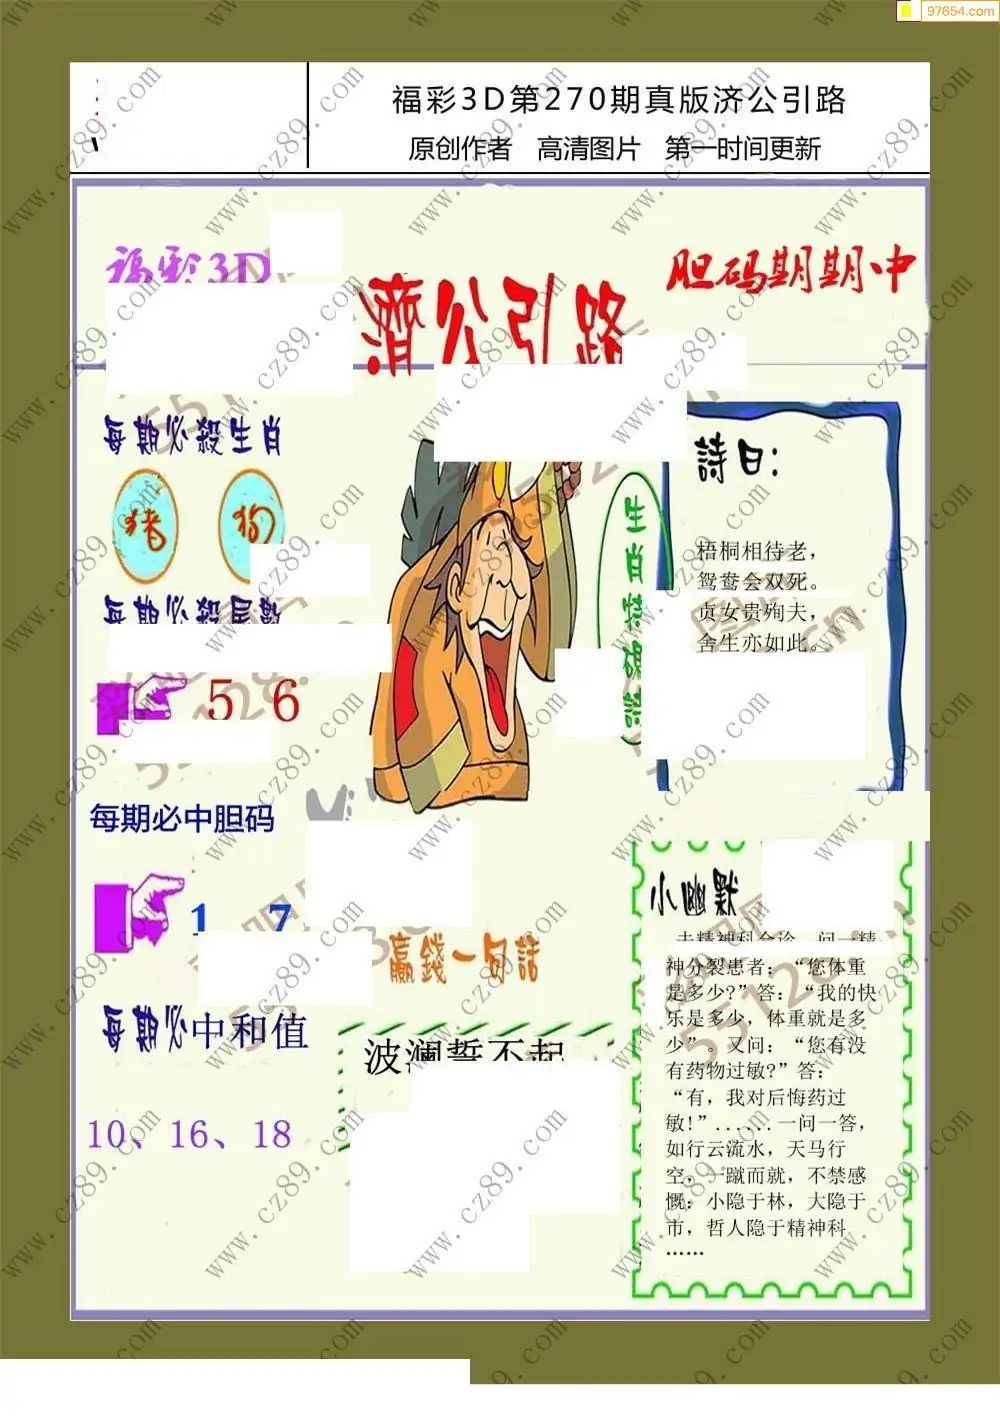 97654.com
福彩3D第270期真版济公引路
原创作者 高清图片 第一时间更新
福彩3D
濟公引路
胆码期期中
每期必殺生肖
猪 狗
每期必殺尾數
5 6
每期必中胆码
1 7
每期必中和值
10、16、18
生肖特碼詩
詩曰：
梧桐相待老，
鸳鸯会双死。
贞女贵殉夫，
舍生亦如此。
赢錢一句話
波澜誓不起
小幽默
去精神科会诊，问一精
神分裂患者：“您体重
是多少?”答：“我的快
乐是多少，体重就是多
少”。又问：“您有没
有药物过敏?”答：
“有，我对后悔药过
敏!”......一问一答，
如行云流水，天马行
空，一蹴而就，不禁感
慨：小隐于林，大隐于
市，哲人隐于精神科
……
www.cz89.com